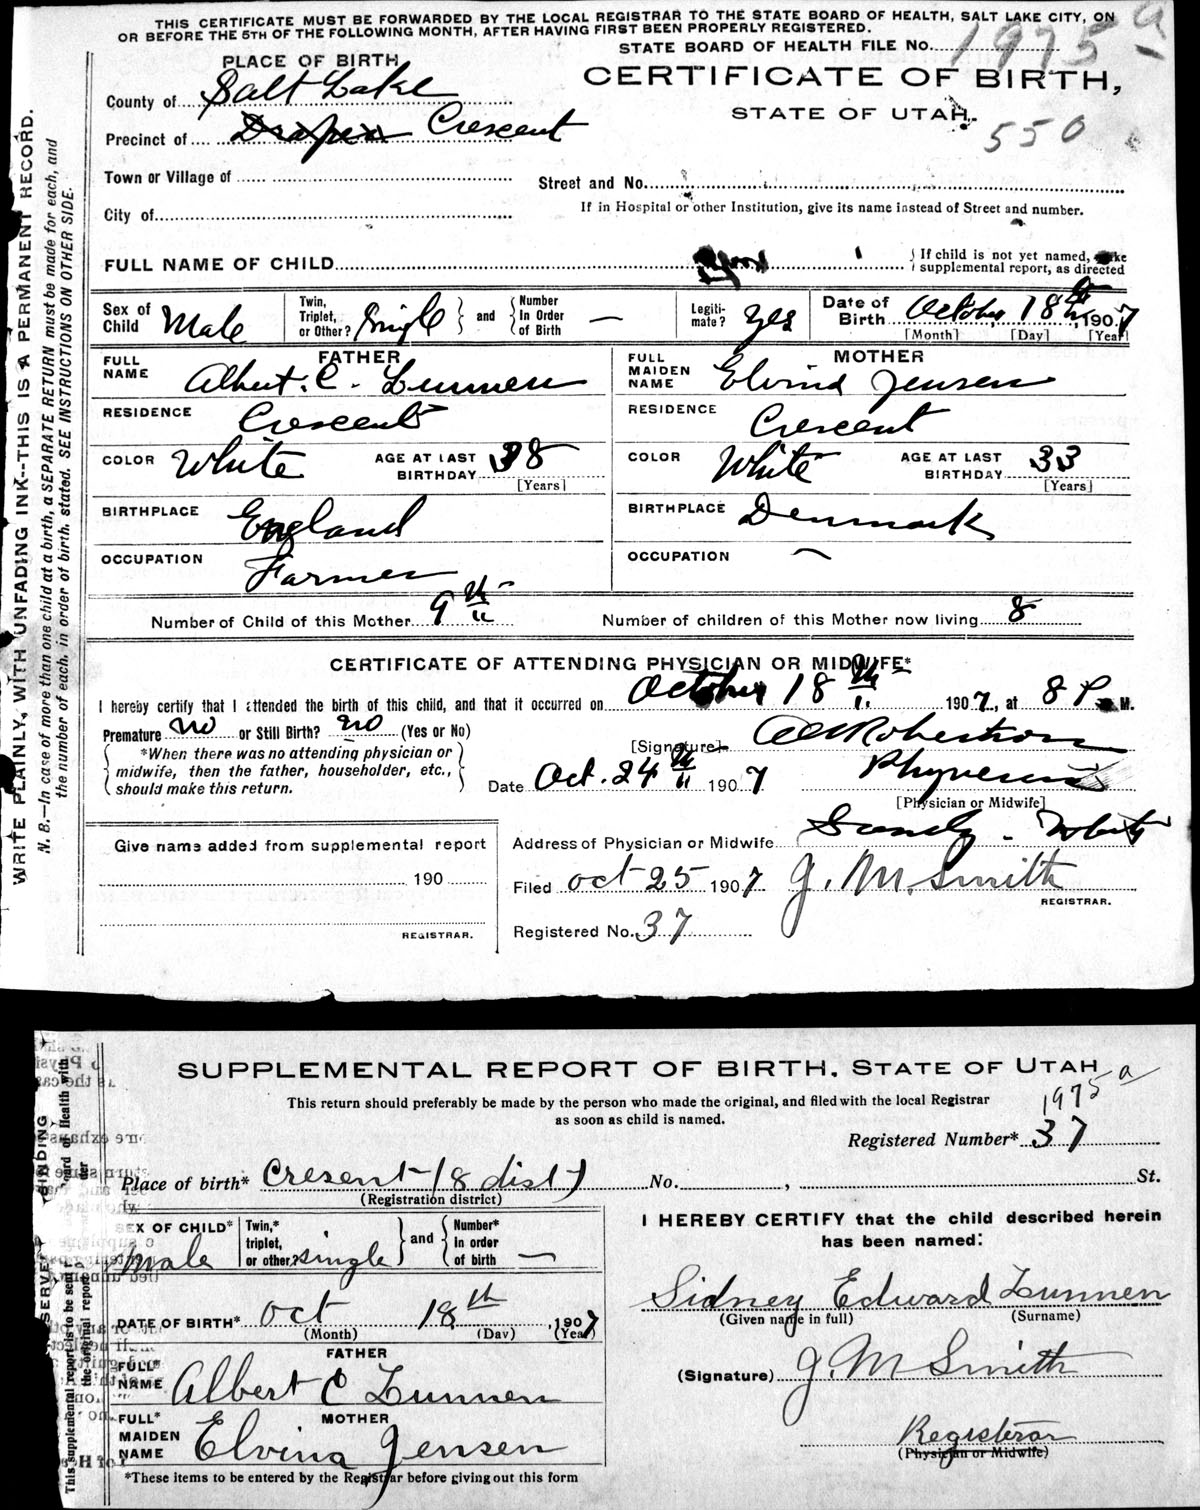 THIS CERTIFICATE MUST BE FORWARDED BY THE LOCAL REGISTRAR TO THE STATE BOARD OF HEALTH, SALT LAKE CITY, ON
OR BEFORE THE 5TH OF THE FOLLOWING MONTH, AFTER HAVING FIRST BEEN PROPERLY REGISTERED.
STATE BOARD OF HEALTH FILE NO. 1975 a
PLACE OF BIRTH
CERTIFICATE OF BIRTH,
County of Salt Lake
STATE OF UTAH.
550
Precinct of Draper Crescent
Town or Village of
Street and No.
City of
If in Hospital or other Institution, give its name instead of Street and number.
FULL NAME OF CHILD
If child is not yet named, make
supplemental report, as directed
Sex of Child Male
Twin, Triplet, or Other? Single and Number In Order of Birth —
Legiti-mate? Yes
Date of Birth October 18th, 1907
[Month] [Day] [Year]
FATHER
FULL NAME Albert. C. Lunnen
MOTHER
FULL MAIDEN NAME Elvind Jensen
RESIDENCE Crescent
RESIDENCE Crescent
COLOR White AGE AT LAST BIRTHDAY 38 [Years]
COLOR White AGE AT LAST BIRTHDAY 33 [Years]
BIRTHPLACE England
BIRTHPLACE Denmark
OCCUPATION Farmer
OCCUPATION —
Number of Child of this Mother 9th
Number of children of this Mother now living 8
CERTIFICATE OF ATTENDING PHYSICIAN OR MIDWIFE*
I hereby certify that I attended the birth of this child, and that it occurred on October 18th 1907, at 8 P. M.
Premature no or Still Birth? no (Yes or No)
[Signature] Robertson
*When there was no attending physician or
midwife, then the father, householder, etc.,
should make this return.
Date Oct. 24th 1907
[Physician or Midwife]
Address of Physician or Midwife Sandy -
Give name added from supplemental report
190
REGISTRAR.
Filed Oct 25 1907 J. M. Smith
REGISTRAR.
Registered No. 37
WRITE PLAINLY, WITH UNFADING INK--THIS IS A PERMANENT RECORD.
N. B.—In case of more than one child at a birth, a SEPARATE RETURN must be made for each, and
the number of each, in order of birth, stated. SEE INSTRUCTIONS ON OTHER SIDE.
SUPPLEMENTAL REPORT OF BIRTH. STATE OF UTAH
This return should preferably be made by the person who made the original, and filed with the local Registrar
as soon as child is named.
1975 a
Registered Number* 37
Place of birth* Cresent (8 dist) No. , St.
(Registration district)
SEX OF CHILD* Male
Twin,* triplet, or other? single and Number* in order of birth —
DATE OF BIRTH* Oct 18th, 1907
(Month) (Day) (Year)
FATHER
FULL* NAME Albert C Lunnen
MOTHER
FULL* MAIDEN NAME Elvina Jensen
*These items to be entered by the Registrar before giving out this form
I HEREBY CERTIFY that the child described herein
has been named:
Sidney Edward Lunnen
(Given name in full) (Surname)
(Signature) J M Smith
Registerar
(Physician or Midwife)